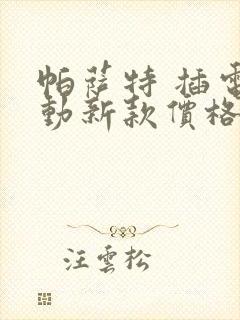 帕薩特 插電
動新款價格
汪雲松